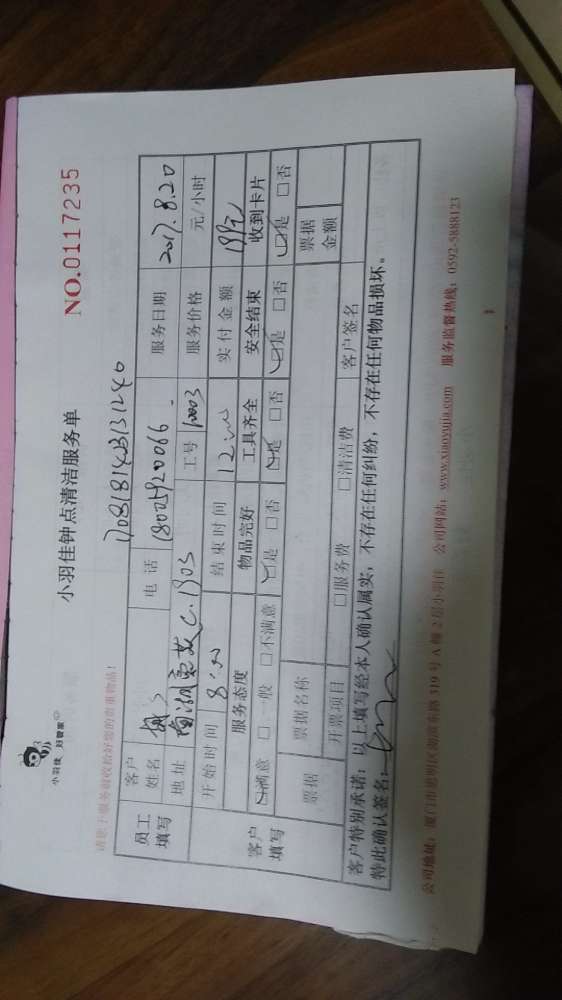 小羽佳 好管家
小羽佳钟点清洁服务单
NO.0117235
请您于服务前收拾好您的贵重物品!
1708181423131240
员工填写
客户姓名
电话 18005920066
服务日期 2017.8.20
地址 C.1903
工号
服务价格 元/小时
开始时间 8:00
结束时间 12:00
实付金额
客户填写
服务态度 物品完好 工具齐全 安全结束 收到卡片
☑满意 □一般 □不满意 ☑是 □否 ☑是 □否 ☑是 □否 ☑是 □否
票据 票据名称 票据金额
开票项目 □服务费 □清洁费 客户签名
客户特别承诺:以上填写经本人确认属实,不存在任何纠纷,不存在任何物品损坏。
特此确认签名:
公司地址:厦门市思明区湖滨东路319号A幢2层小羽佳 公司网站:www.xiaoyujia.com 服务监督热线:0592-5888123